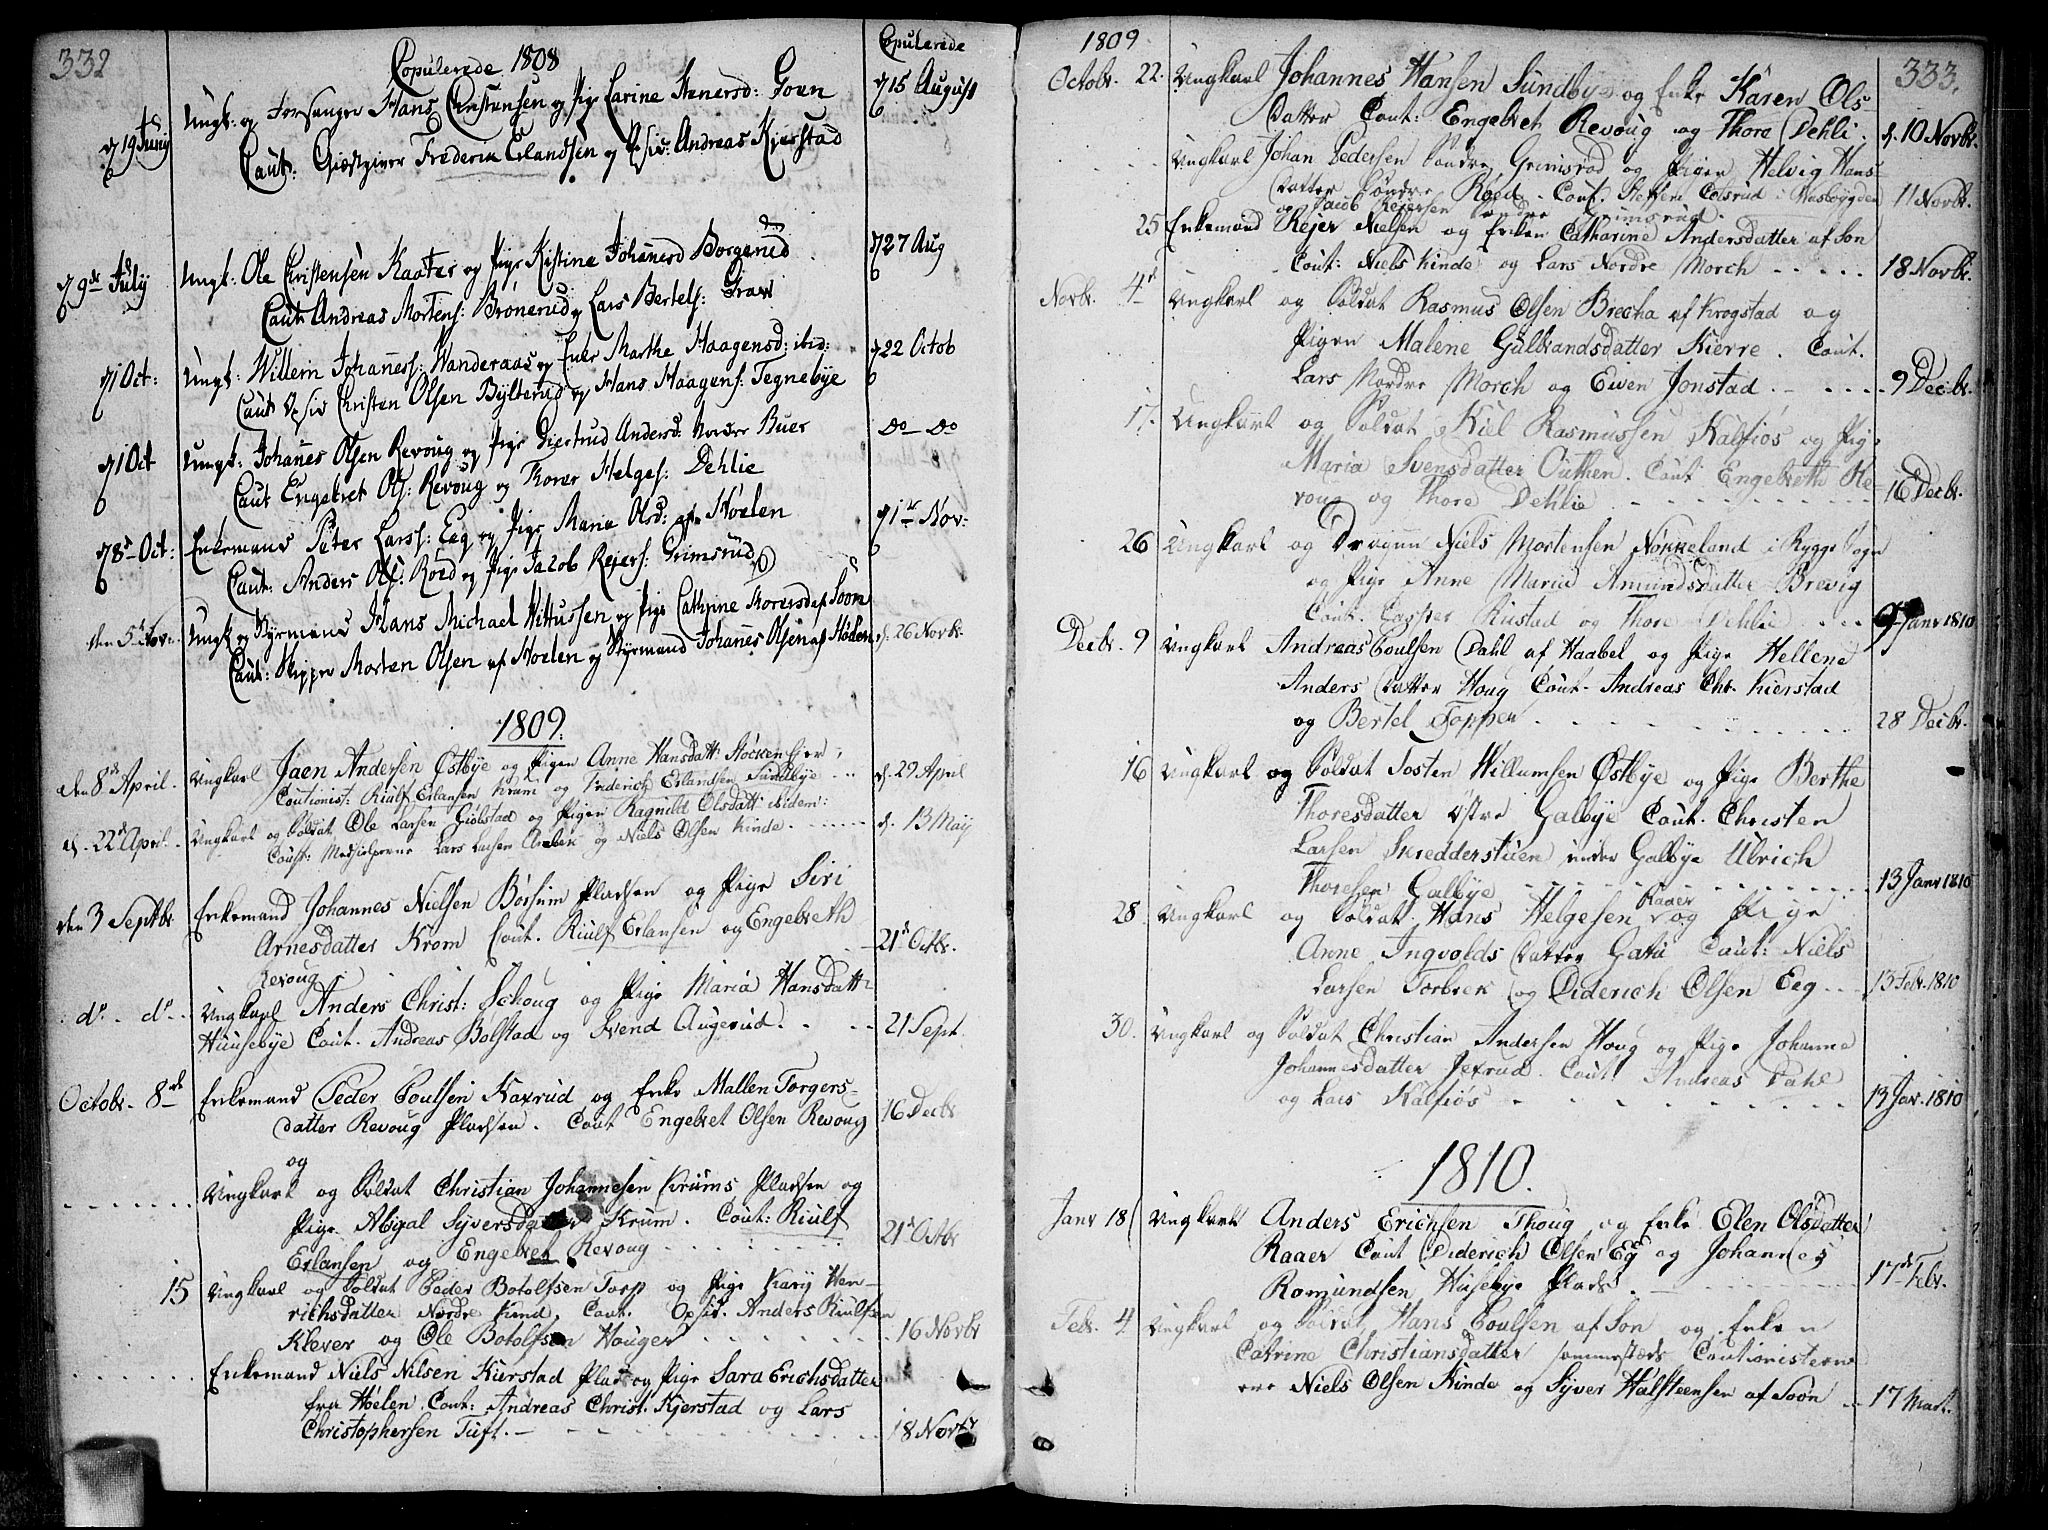 332
Copulerede 1808
Copulerede
d 19 Juny Ungk: og Forsanger Hans Christensen og Pige Carine Stenersd: Goen d 15 August
Caut: Giæstgiver Frederik Erlandsen og Andreas Kierstad
d 9de July Ungk: Ole Christensen Kaater og Pige Kistine Johanesd Borgerud d 27 Aug
Caut Andreas Mortens: Brønerud og Lars Bertels: Grav
d 1 Oct: Ungk: Willem Johaness: Wanderaas og Enke Marthe Haagensd: ibid: d 22 Octob
Caut Christen Olsen Bylterud og Hans Haagens: Tegnebye
d 1 Oct Ungk: Johanes Olsen Revoug og Pige Giertrud Andersd: Nordre Buer Do Do
Caut Engebret Ols: Revoug og Thorer Helges: Dehlie
d 8 Oct: Enkemand Peter Larss: Eeg og Pige Maria Olsd: af Hoelen d 1 Nov:
Caut: Anders Ols: Roed og Jacob Reiers: Grimsrud
den 5 Nov: Ungk og Styrmand Hans Michael Hittussen og Pige Cathrine Thoresd af Soon d. 26 Novbr.
Caut: Skipper Morten Olsen af Hoelen og Styrmand Johanes Olsen af Holen
1809.
den 8de April. Ungkarl Jaen Andersen Østbye og Pigen Anne Hansdatt: Støckenfier d. 29 April
Coutionist: Riulf Erlansen Krum og Friderich Erlandsen Sundbye
d. 22d April. Ungkarl og Soldat Ole Larsen Giølstad og Pigen Ragnild Olsdatt: ibidem: d. 13 May
Caut: Medhielperne Lars Larsen og Niels Olsen Kinde
den 3 Septbr Enkemand Johannes Nielsen Børsum Pladsen og Pige Siri
Arnesdatter Krom Cout. Riulf Erlansen og Engebreth 21d Octbr.
Revoug
do. do. Ungkarl Anders Christ: Schoug og Pige Maria Hansdattr
Huusebye Cout. Andreas Bolstad og Svend Augerud. 21 Sept.
Octobr. 8de Enkemand Peder Poulsen Kaxrud og Enke Mallen Torgers-
datter Revoug Pladsen. Cout Engebret Olsen Revoug 16 Decbr
og
Ungkarl og Soldat Christian Johannesen Krums Pladsen og
Pige Abigal Syversdatter Krum. Cout: Riulf
Erlansen og Engebret Revoug 21d Octbr
15 Ungkarl og Soldat Peder Botolfsen Torp og Pige Karij Hen-
richsdatter Nordre Kind. Cout. Anders Riulfsen
Klever og Ole Botolfsen Houger 16 Novbr
Enkemand Niels Nilsen Kierstad Plads og Pige Sara Erichsdatter
fra Hoelen. Cout: Andreas Christ. Kjerstad og Lars
Christophersen Tuft. 18 Novbr
1809.
333.
Octobr. 22. Ungkarl Johannes Hansen Sundbye og Enke Karen Ols-
Datter Cout: Engebret Revoug og Thore Dehli. d. 10 Novbr.
Ungkarl Johan Pedersen Søndre Grimsrød og Pigen Helvig Hans-
Datter Søndre Røed. Cout. Steffen Colsrud i 11 Novbr.
og Jacob Reiersen Søndre Grimsrud.
25 Enkemand Rejer Nielsen og Enken Catharine Andersdatter af Son
Cout: Niels Kinde og Lars Nordre Morch 18 Novbr.
Novbr. 4d Ungkarl og Soldat Rasmus Olsen Brecha af Krogstad og
Pigen Malene Gulbrandsdatter Kierre. Cout.
Lars Nordre Morch og Even Jonstad. 9 Decbr.
17. Ungkarl og Soldat Kiel Rasmussen Kalfiøs og Pige
Maria Svensdatter Outhen. Cout Engebreth Re-
voug og Thore Dehlie. 16 Decbr.
26 Ungkarl og Dragun Niels Mortensen Nøkkeland i Rygge Sogn
og Pige Anne Maria Amundsdatter Brevig
Cout. Casper Rustad og Thore Dehlie Janr 1810
Decbr. 9 Ungkarl Andreas Poulsen Dahl af Haabel og Pige Hellene
Anders Datter Houg Cout. Andreas Chr. Kierstad
og Bertel Toppen. 28 Decbr.
16 Ungkarl og Soldat Tosten Willumsen Østbye og Pige Berthe
Thoresdatter Østre Galbye Cout. Christen
Larsen Skredderstuen under Galbye Ulrich
Thoresen Galbye 13 Janr 1810
28 Ungkarl og Soldat Hans Helgesen Raaer og Pige
Anne Ingvolds Datter Gatu Caut: Niels
Larsen Torbek og Diderich Olsen Eeg 13 Febr. 1810
30. Ungkarl og Soldat Christian Andersen Houg og Pige Johanne
Johannesdatter Jexrud. Cout. Andreas Dahl
og Lars Kalfiøs 13 Jar. 1810
1810.
Janr 18 Ungkarl Anders Erichsen Thoug og Enke Elen Olsdatter
Raaer Cout Diderich Olsen Eg og Johannes
Romundsen Husebye Plads. 17de Febr.
Febr. 4 Ungkarl og Soldat Hans Poulsen af Son og Enken
Catrine Christiansdatter sammestæds Coutionisterne
ere Niels Olsen Kinde og Syver Halfsteensen af Soon 17 Mart.